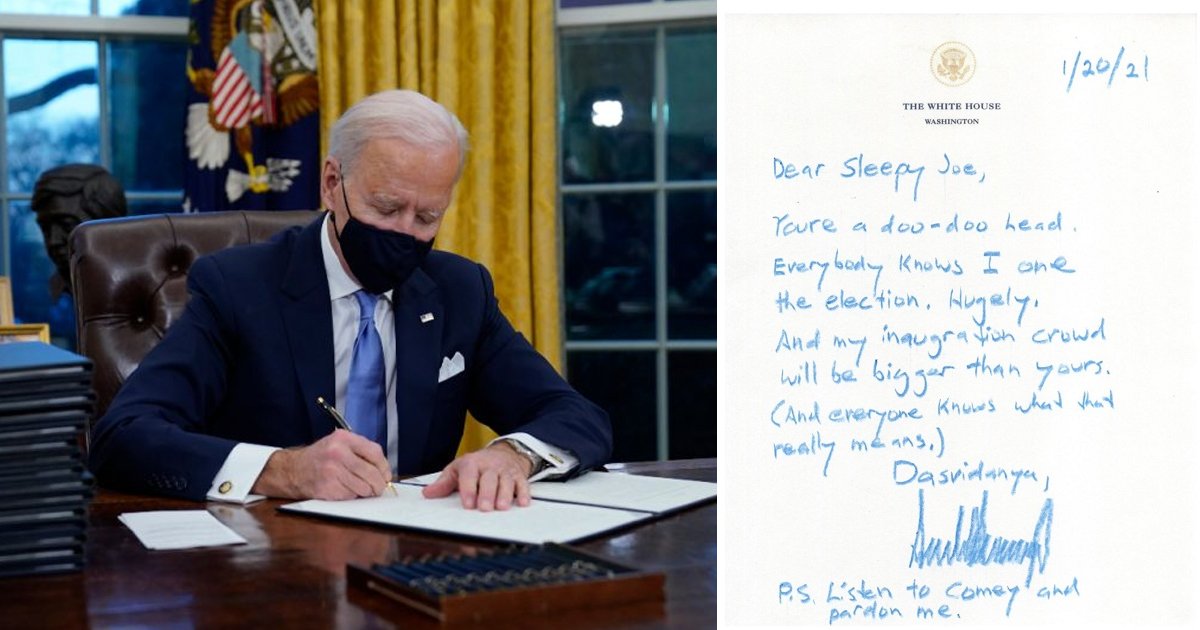 1/20/21
THE WHITE HOUSE
WASHINGTON
Dear Sleepy Joe,
You're a doo-doo head.
Everybody knows I one
the election. Hugely.
And my inaugration crowd
will be bigger than yours.
(And everyone knows what that
really means.)
Dasvidanya,
P.S. Listen to Comey and
pardon me.